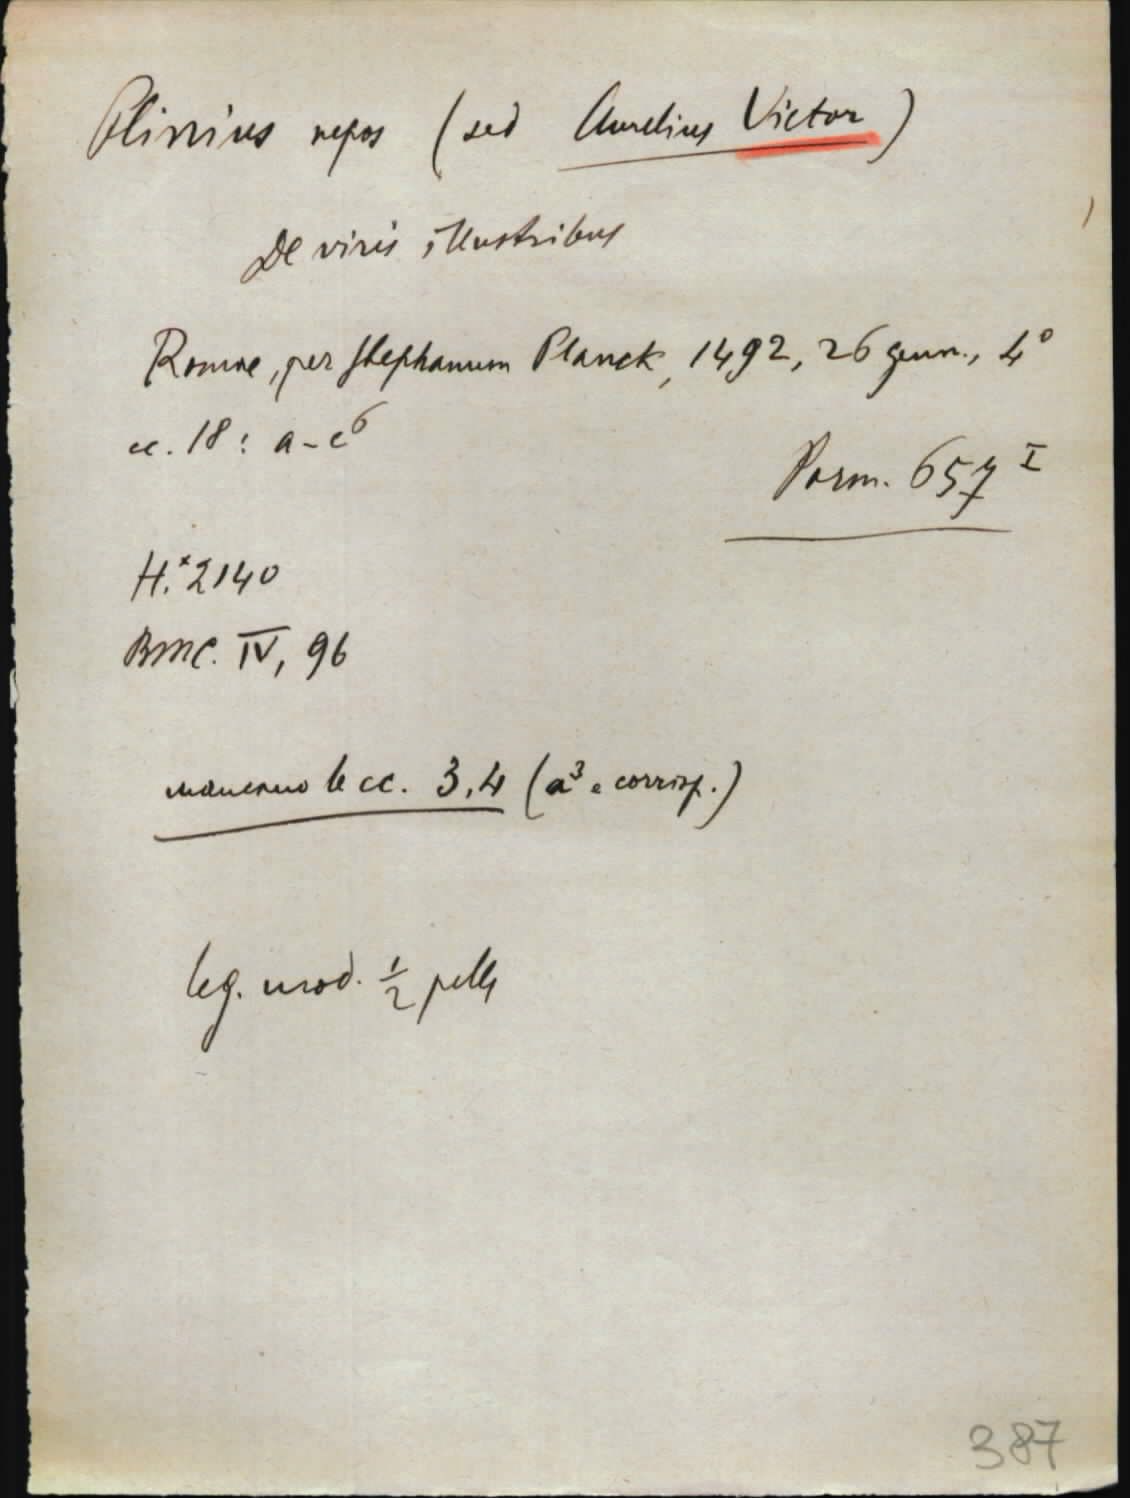 Plinius nepos (sed Aurelius Victor)
De viris illustribus
Romae, per Stephanum Planck, 1492, 26 genn., 4°
cc. 18: a-c⁶
Parm. 657 I
H.*2140
BMC. IV, 96
mancano le cc. 3.4 (a³ e corrisp.)
leg. mod. ½ pelle
387